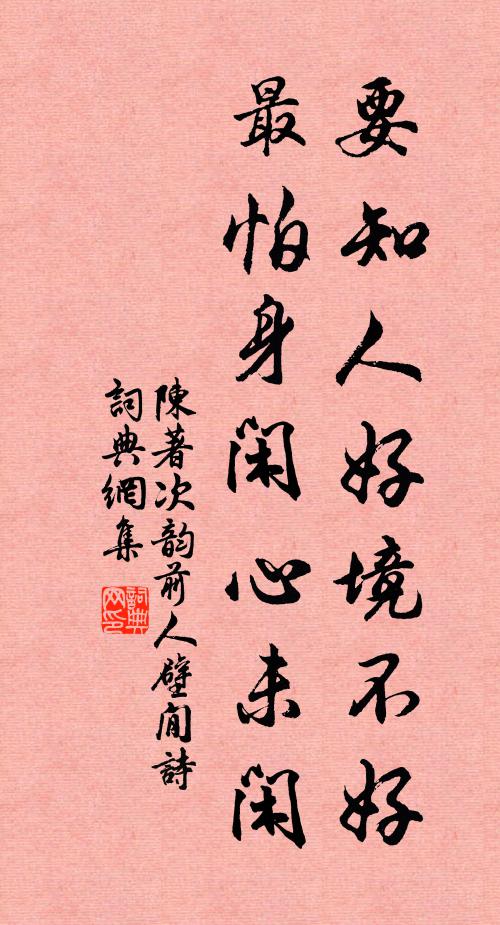 要知人好境不好
最怕身閑心未閑
陳著次韵前人壁間詩
詞典網集
詞典网印